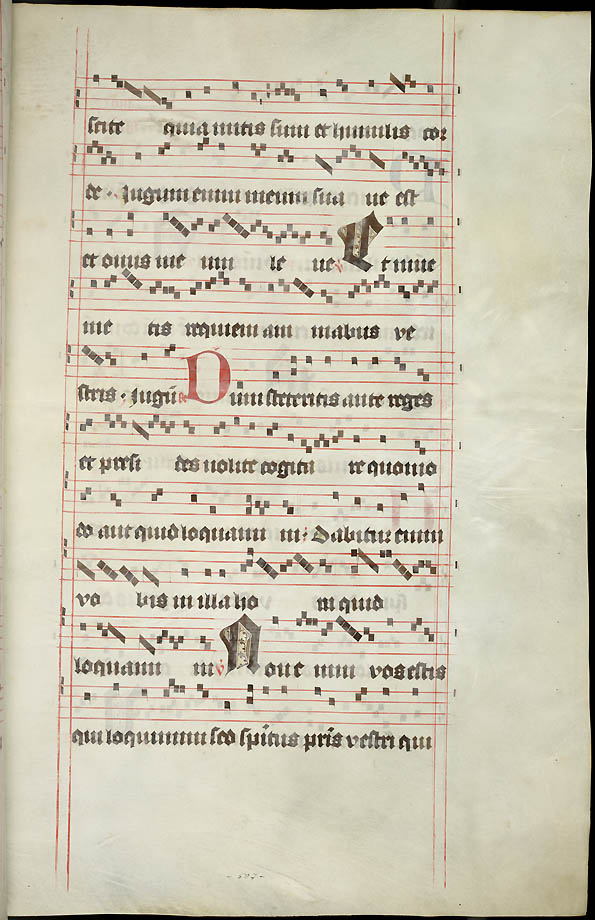 scite quia mitis sum et humilis cor
de · Jugum enim meum sua ue est
et onus me um le ue ℣ Et inue
nie tis requiem ani mabus ve
stris · Jugū ℟ Dum steteritis ante reges
et presi des nolite cogita re quomo
do aut quid loquami ni · Dabitur enim
vo bis in illa ho ra quid
loquami ni ℣ Non enim vos estis
qui loquimini sed spiritus pris vestri qui